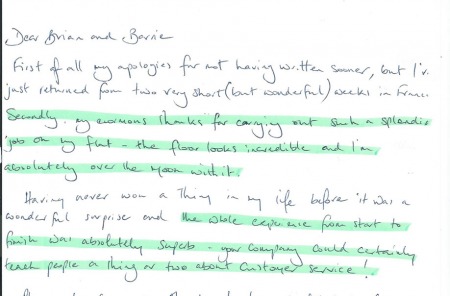 Dear Brian and Barrie
First of all my apologies for not having written sooner, but I'v
just returned from two very short (but wonderful) weeks in Franc
Secondly my enormous thanks for carrying out such a splendid
job on my flat - the floor looks incredible and I'm
absolutely over the moon with it.
Having never won a thing in my life before it was a
wonderful surprise and the whole experience from start to
finish was absolutely superb - your company could certainly
teach people a thing or two about customer service!